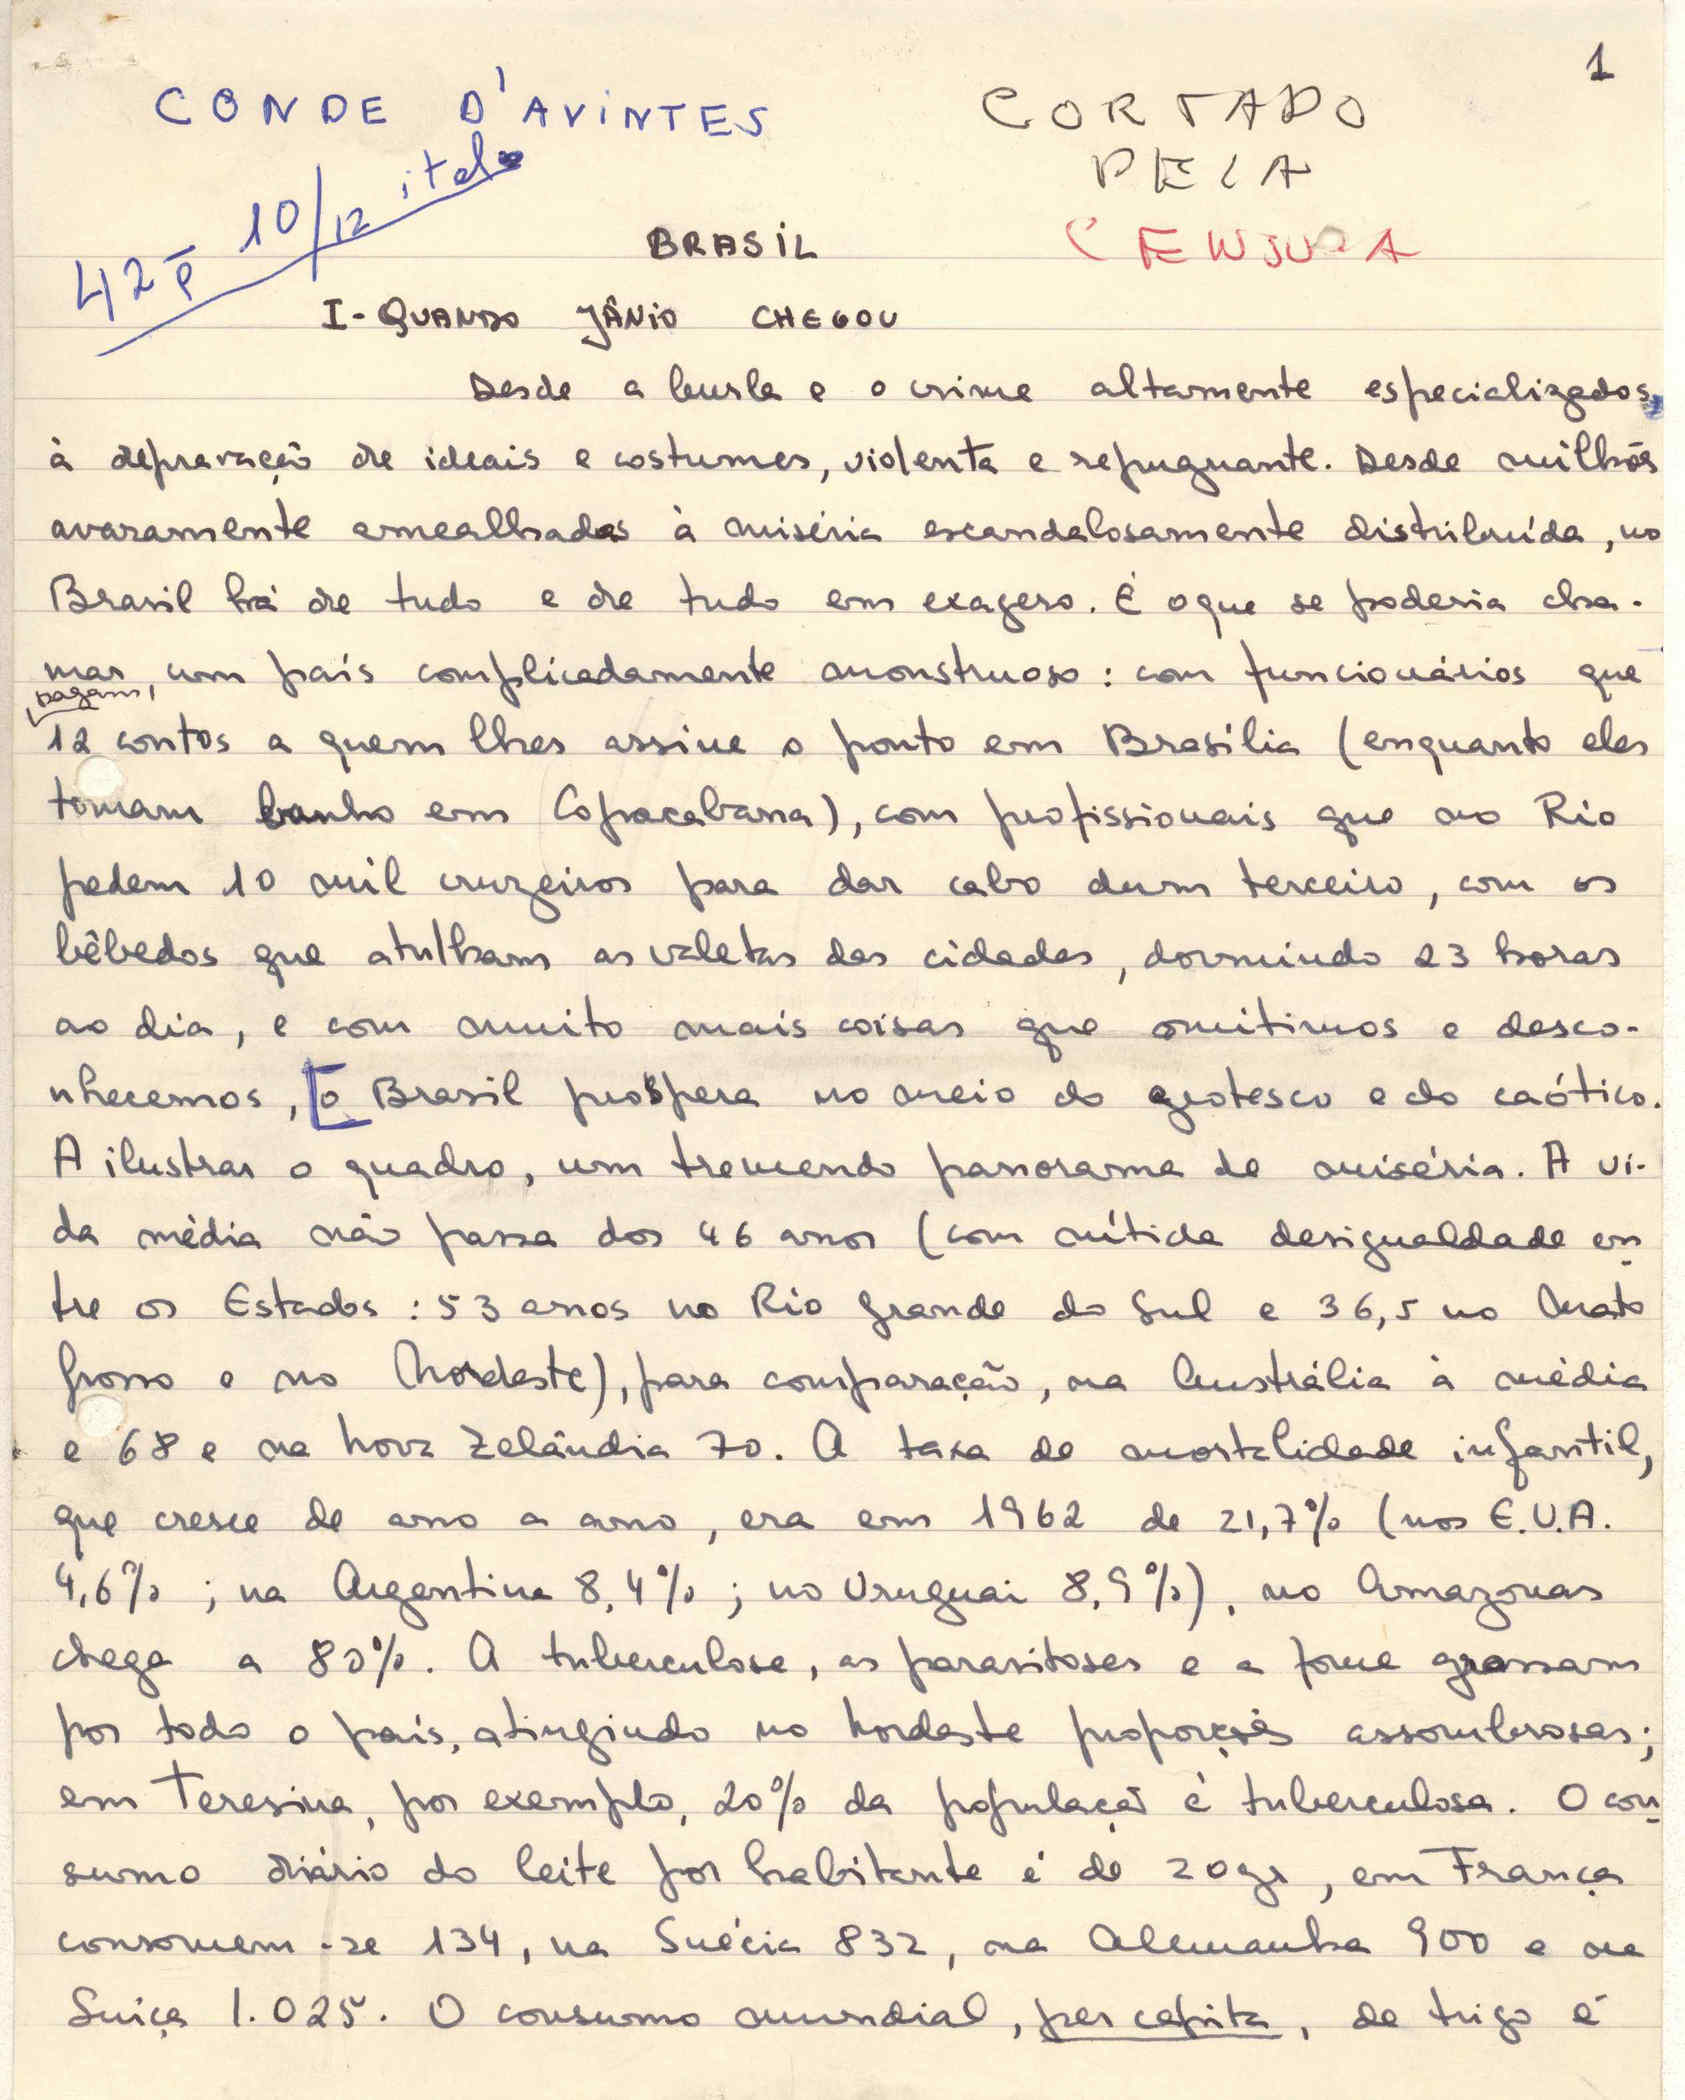 1
CONDE D'AVINTES
CORTADO
PELA
CENSURA
42 P 10/12 ital
BRASIL
I- QUANDO JÂNIO CHEGOU
Desde a burla e o crime altamente especializados,
à depravação de ideais e costumes, violenta e repugnante. Desde milhões
avaramente amealhados à miséria escandalosamente distribuída, no
Brasil há de tudo e de tudo em exagero. É o que se poderia cha-
mar, um país complicadamente monstruoso: com funcionários que
pagam,
12 contos a quem lhes assine o ponto em Brasília (enquanto eles
tomam banho em Copacabana), com profissionais que no Rio
pedem 10 mil cruzeiros para dar cabo dum terceiro, com os
bêbedos que atulham as valetas das cidades, dormindo 23 horas
ao dia, e com muito mais coisas que omitimos e desco-
nhecemos, [o Brasil prospera no meio do grotesco e do caótico.
A ilustrar o quadro, um tremendo panorama de miséria. A vi-
da média não passa dos 46 anos (com nítida desigualdade en-
tre os Estados: 53 anos no Rio Grande do Sul e 36,5 no Mato
Grosso e no Nordeste), para comparação, na Austrália à média
e 68 e na Nova Zelândia 70. A taxa de mortalidade infantil,
que cresce de ano a ano, era em 1962 de 21,7% (nos E.U.A.
4,6%; na Argentina 8,4%; no Uruguai 8,9%), no Amazonas
chega a 80%. A tuberculose, as parasitoses e a fome grassam
por todo o país, atingindo no Nordeste proporções assombrosas;
em Teresina, por exemplo, 20% da população é tuberculosa. O con-
sumo diário do leite por habitante é de 20gr, em França
consomem-se 134, na Suécia 832, na Alemanha 900 e na
Suiça 1.025. O consumo mundial, per capita, de trigo é